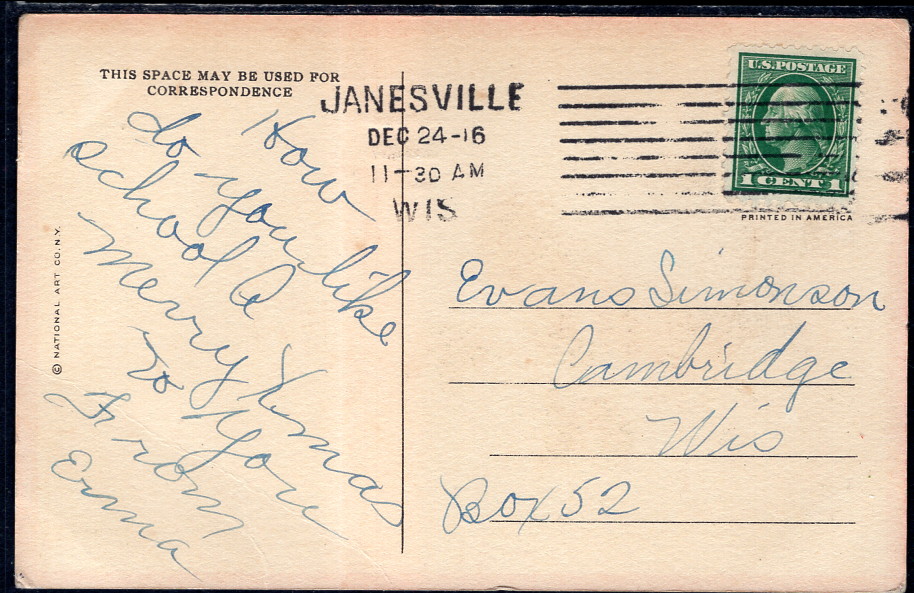 THIS SPACE MAY BE USED FOR
CORRESPONDENCE
JANESVILLE
DEC 24-16
11-30 AM
WIS
U.S. POSTAGE
1 CENT 1
PRINTED IN AMERICA
© NATIONAL ART CO. N.Y.
How
do you like
school A
Merry Xmas
to You
From
Erma
Evans Simonson
Cambridge
Wis
Box 52